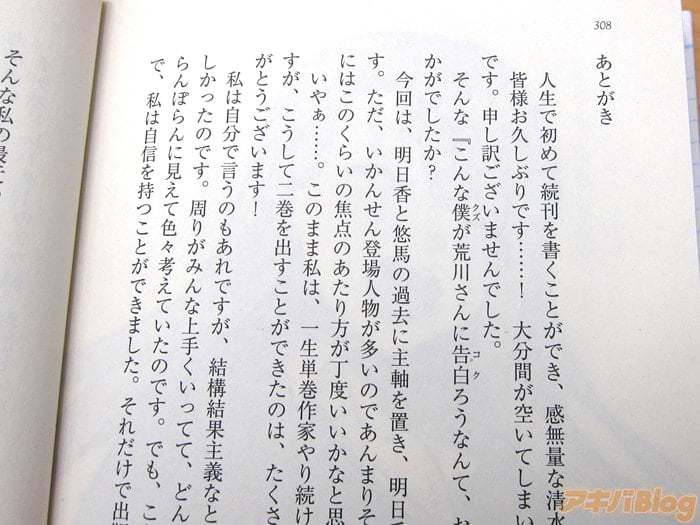 308
あとがき
人生で初めて続刊を書くことができ、感無量な清水
皆様お久しぶりです……！　大分間が空いてしまい
です。申し訳ございませんでした。
そんな『こんな僕が荒川さんに告白ろうなんて、お
クズ
コク
かがでしたか？
今回は、明日香と悠馬の過去に主軸を置き、明日香
す。ただ、いかんせん登場人物が多いのであんまりそ
にはこのくらいの焦点のあたり方が丁度いいかなと思
いやぁ……。このまま私は、一生単巻作家やり続け
すが、こうして二巻を出すことができたのは、たくさ
がとうございます！
私は自分で言うのもあれですが、結構結果主義なと
しかったのです。周りがみんな上手くいってて、どん
らんぽらんに見えて色々考えていたのです。でも、こ
で、私は自信を持つことができました。それだけで出
そんな私の最
アキバBlog